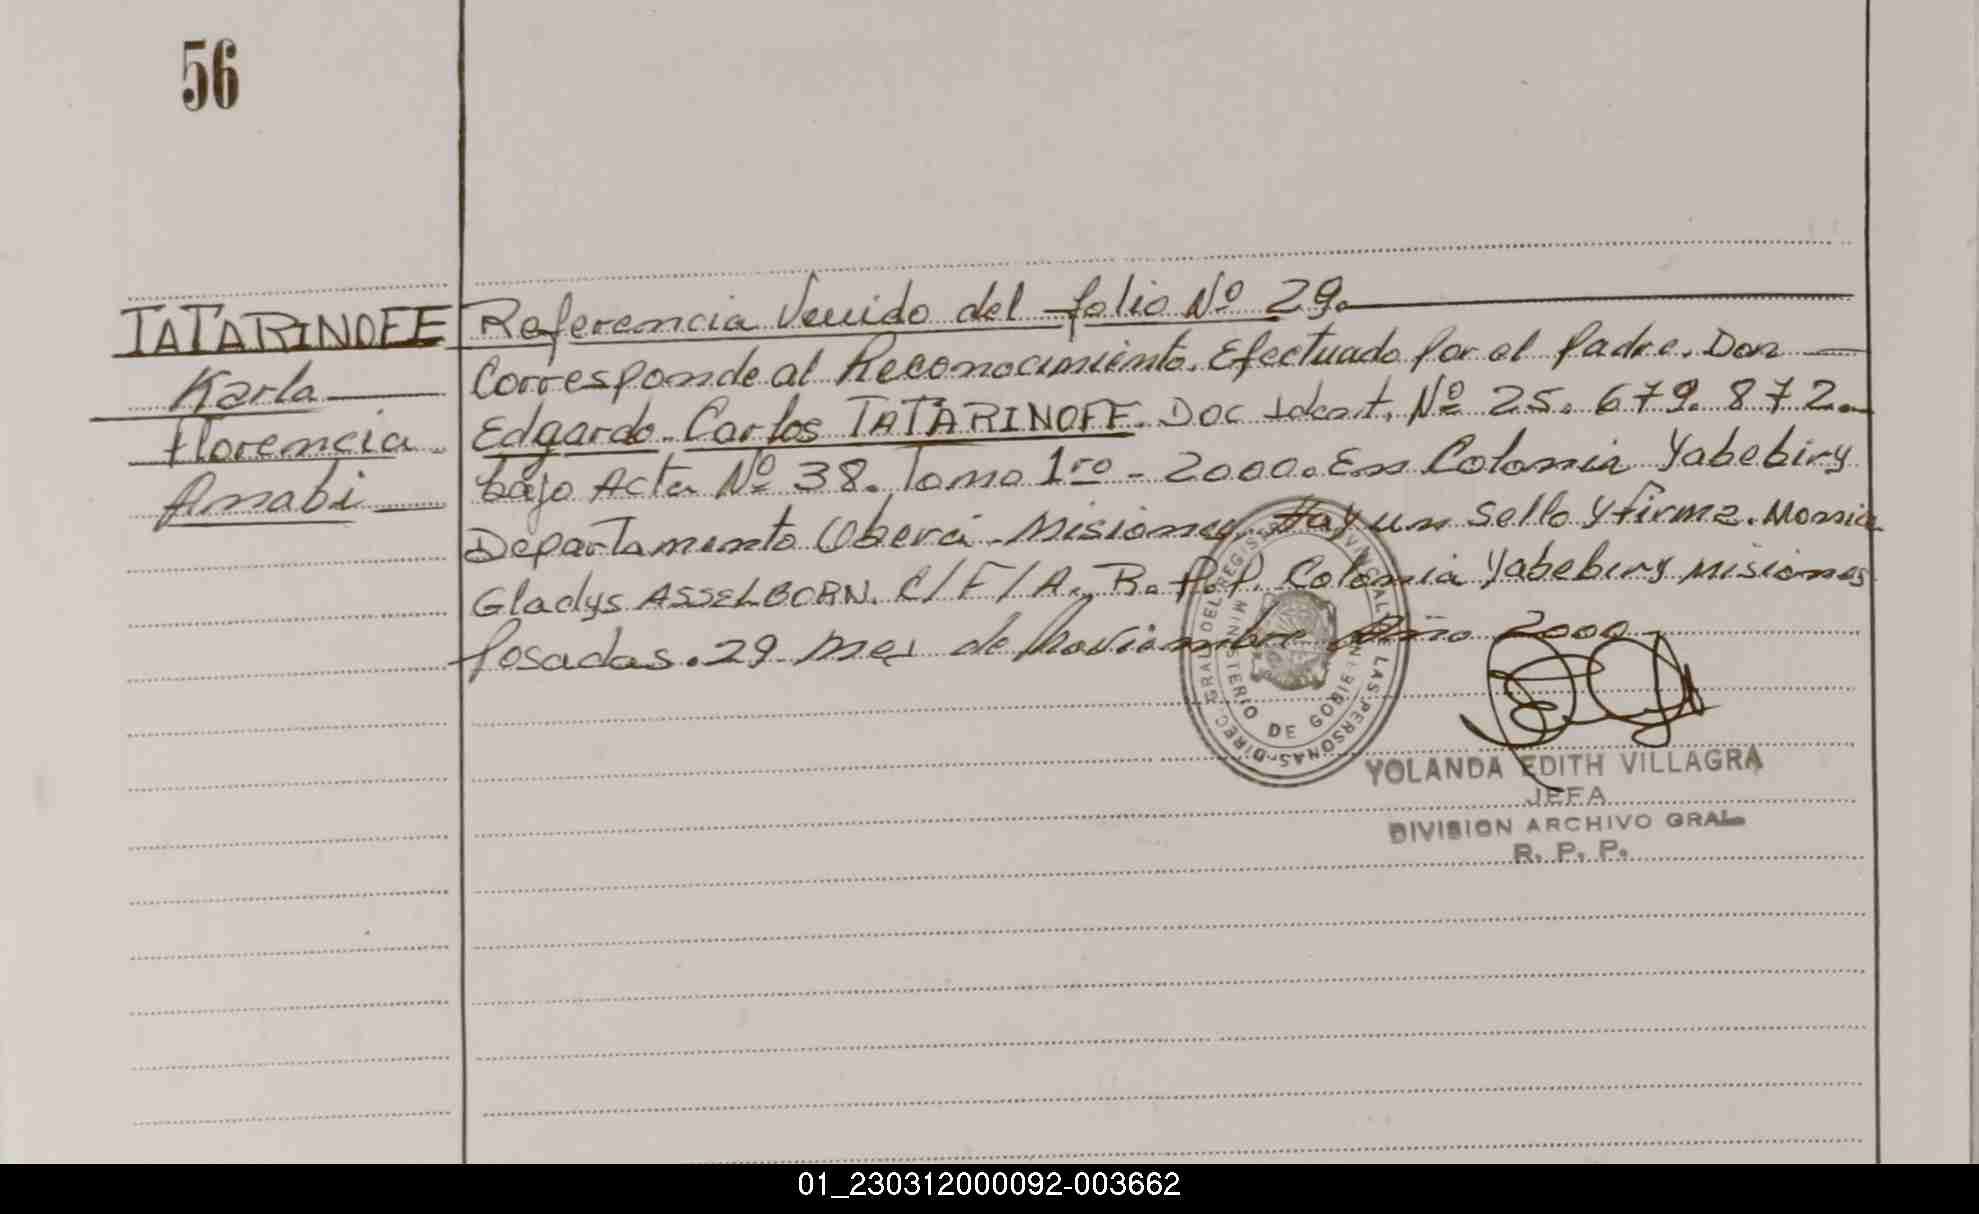 56
TATARINOFF
Karla
Florencia
Anabi
Referencia Venido del folio Nº 29.
Corresponde al Reconocimiento. Efectuado por el padre. Don
Edgardo. Carlos TATARINOFF. Doc Ident. Nº 25.679.872.
bajo Acta Nº 38. Tomo 1ro - 2000. En Colonia Yabebiry
Departamento Oberá - Misiones. Hay un sello y firma. Monica
Gladys ASSELBORN. C/F/A. R.P.P. Colonia Yabebiry Misiones
Posadas. 29 Mes de Noviembre Año 2000
DIREC. GRAL DEL REGISTRO PROVINCIAL DE LAS PERSONAS
MINISTERIO DE GOBIERNO
YOLANDA EDITH VILLAGRA
JEFA
DIVISION ARCHIVO GRAL.
R. P. P.
01_230312000092-003662